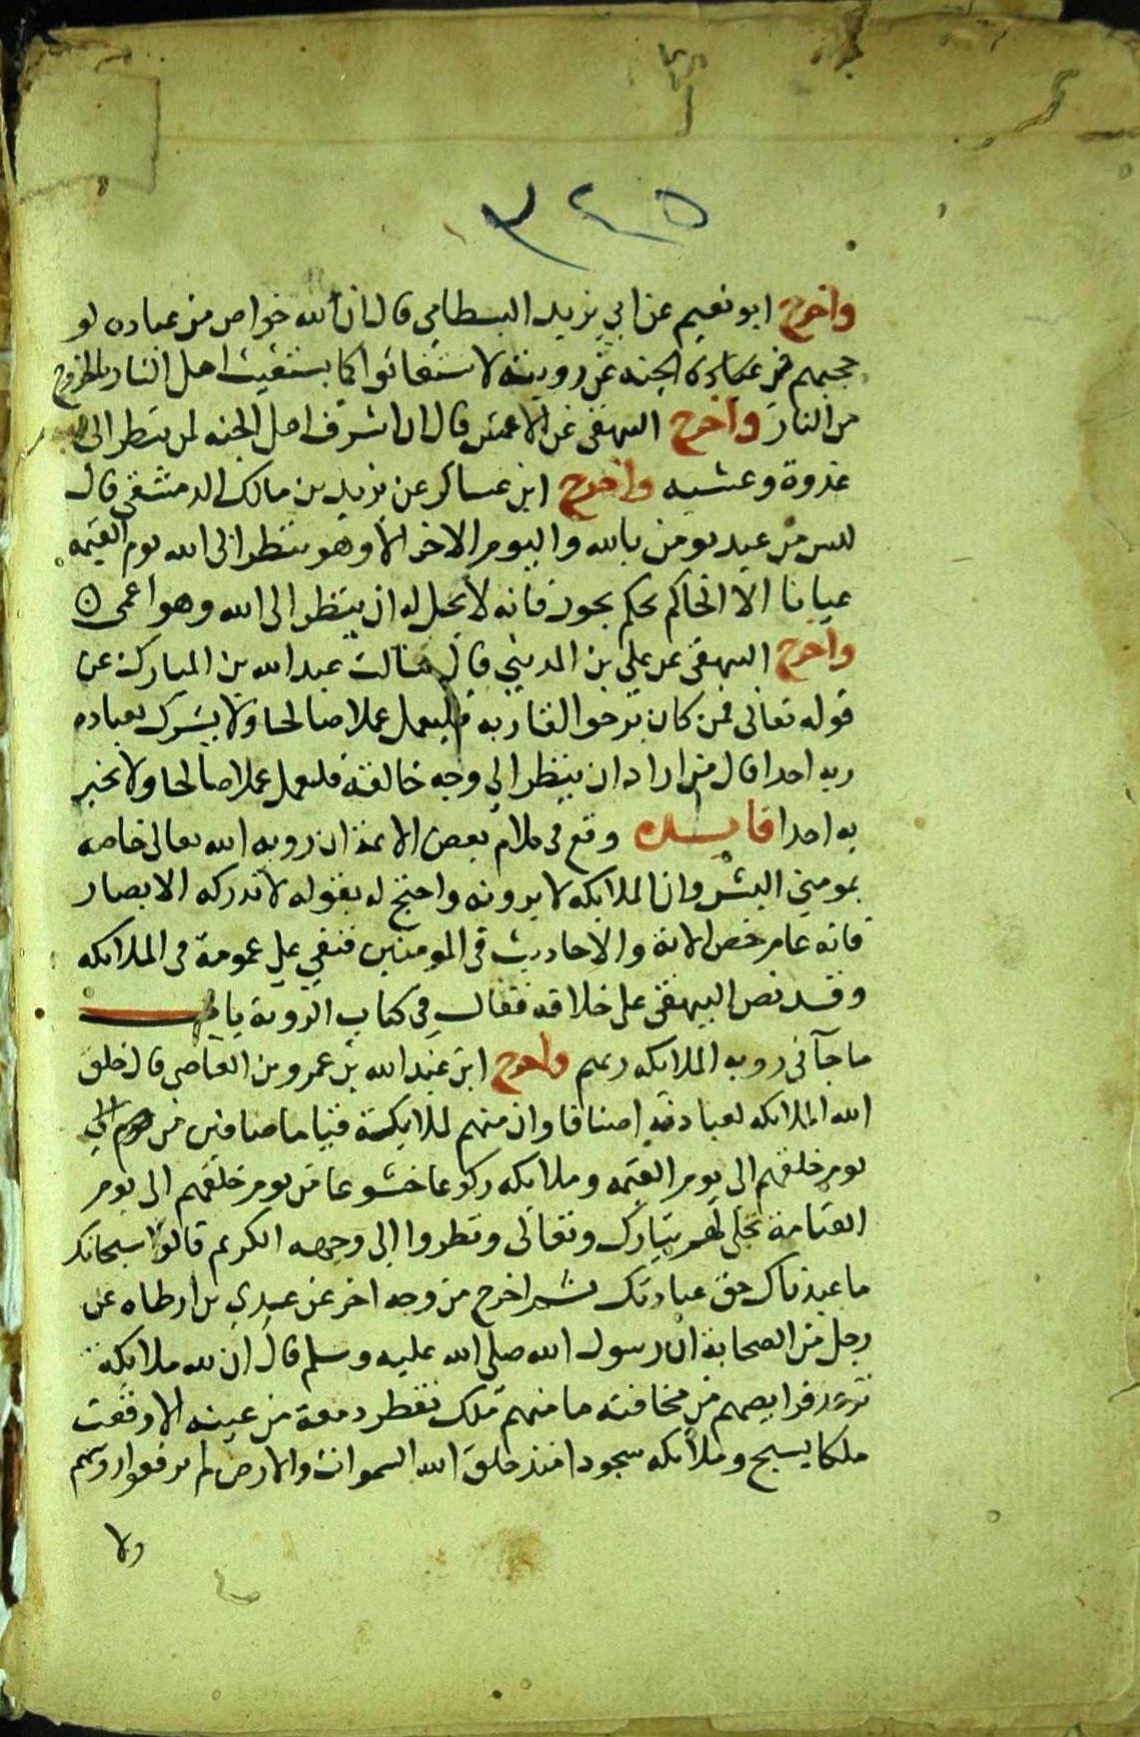 ٣٤٥
واخرج ابو نعيم عن ابي يزيد البسطامي قال ان لله خواص من عباده لو
حجبهم في الجنه عن رويته لاستغاثوا كما يستغيث اهل النار بالخروج
من النار واخرج البيهقي عن الاعمش قال ان اشرف اهل الجنه لمن ينظر الى الله
غدوة وعشيه واخرج ابن عساكر عن يزيد بن مالك الدمشقي قال
ليس من عبد يومن بالله واليوم الاخر الا وهو ينظر الى الله يوم القيمه
عيانا الا الحاكم يحكم بجور فانه لا يحل له ان ينظر الى الله وهو اعمى
واخرج البيهقي عن علي بن المديني قال سالت عبد الله بن المبارك عن
قوله تعالى فمن كان يرجوا لقا ربه فليعمل عملا صالحا ولا يشرك بعباده
ربه احدا قال من اراد ان ينظر الي وجه خالقه فليعمل عملا صالحا ولا يخبر
به احدا فايده وقع في كلام بعض الايمة ان رويه الله تعالى خاصه
بمومني البشر وان الملايكه لا يرونه واحتج له بقوله لا تدركه الابصار
فانه عام خص بالاية والاحاديث في المومنين فبقي على عمومة في الملايكه
وقد نص البيهقي على خلافه فقال في كتاب الروية باب
ما جآ في رويه الملايكه ربهم واخرج ابن عبد الله بن عمرو بن العاصي قال خلق
الله الملايكه لعبادته اصنافا وان منهم لملايكة قياما صافين من
يوم خلقهم الى يوم القيمه وملايكه ركوعا خشوعا من يوم خلقهم الى يوم
القيامة تجلى لهم تبارك وتعالى ونظروا الى وجهه الكريم قالوا سبحانك
ما عبدناك حق عبادتك ثم اخرج من وجه اخر عن عدي بن ارطاه عن
رجل من الصحابة ان رسول الله صلى الله عليه وسلم قال ان لله ملايكة
ترعد فرايصهم من مخافته ما منهم ملك تقطر دمعة من عينه الا وقعت
ملكا يسبح وملايكه سجودا منذ خلق الله السموات والارض لم يرفعوا روسهم
ولا